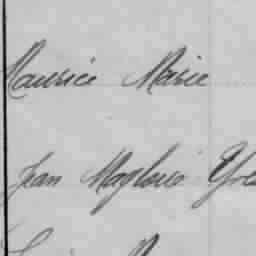 Maurice Marie
Jean Magloire